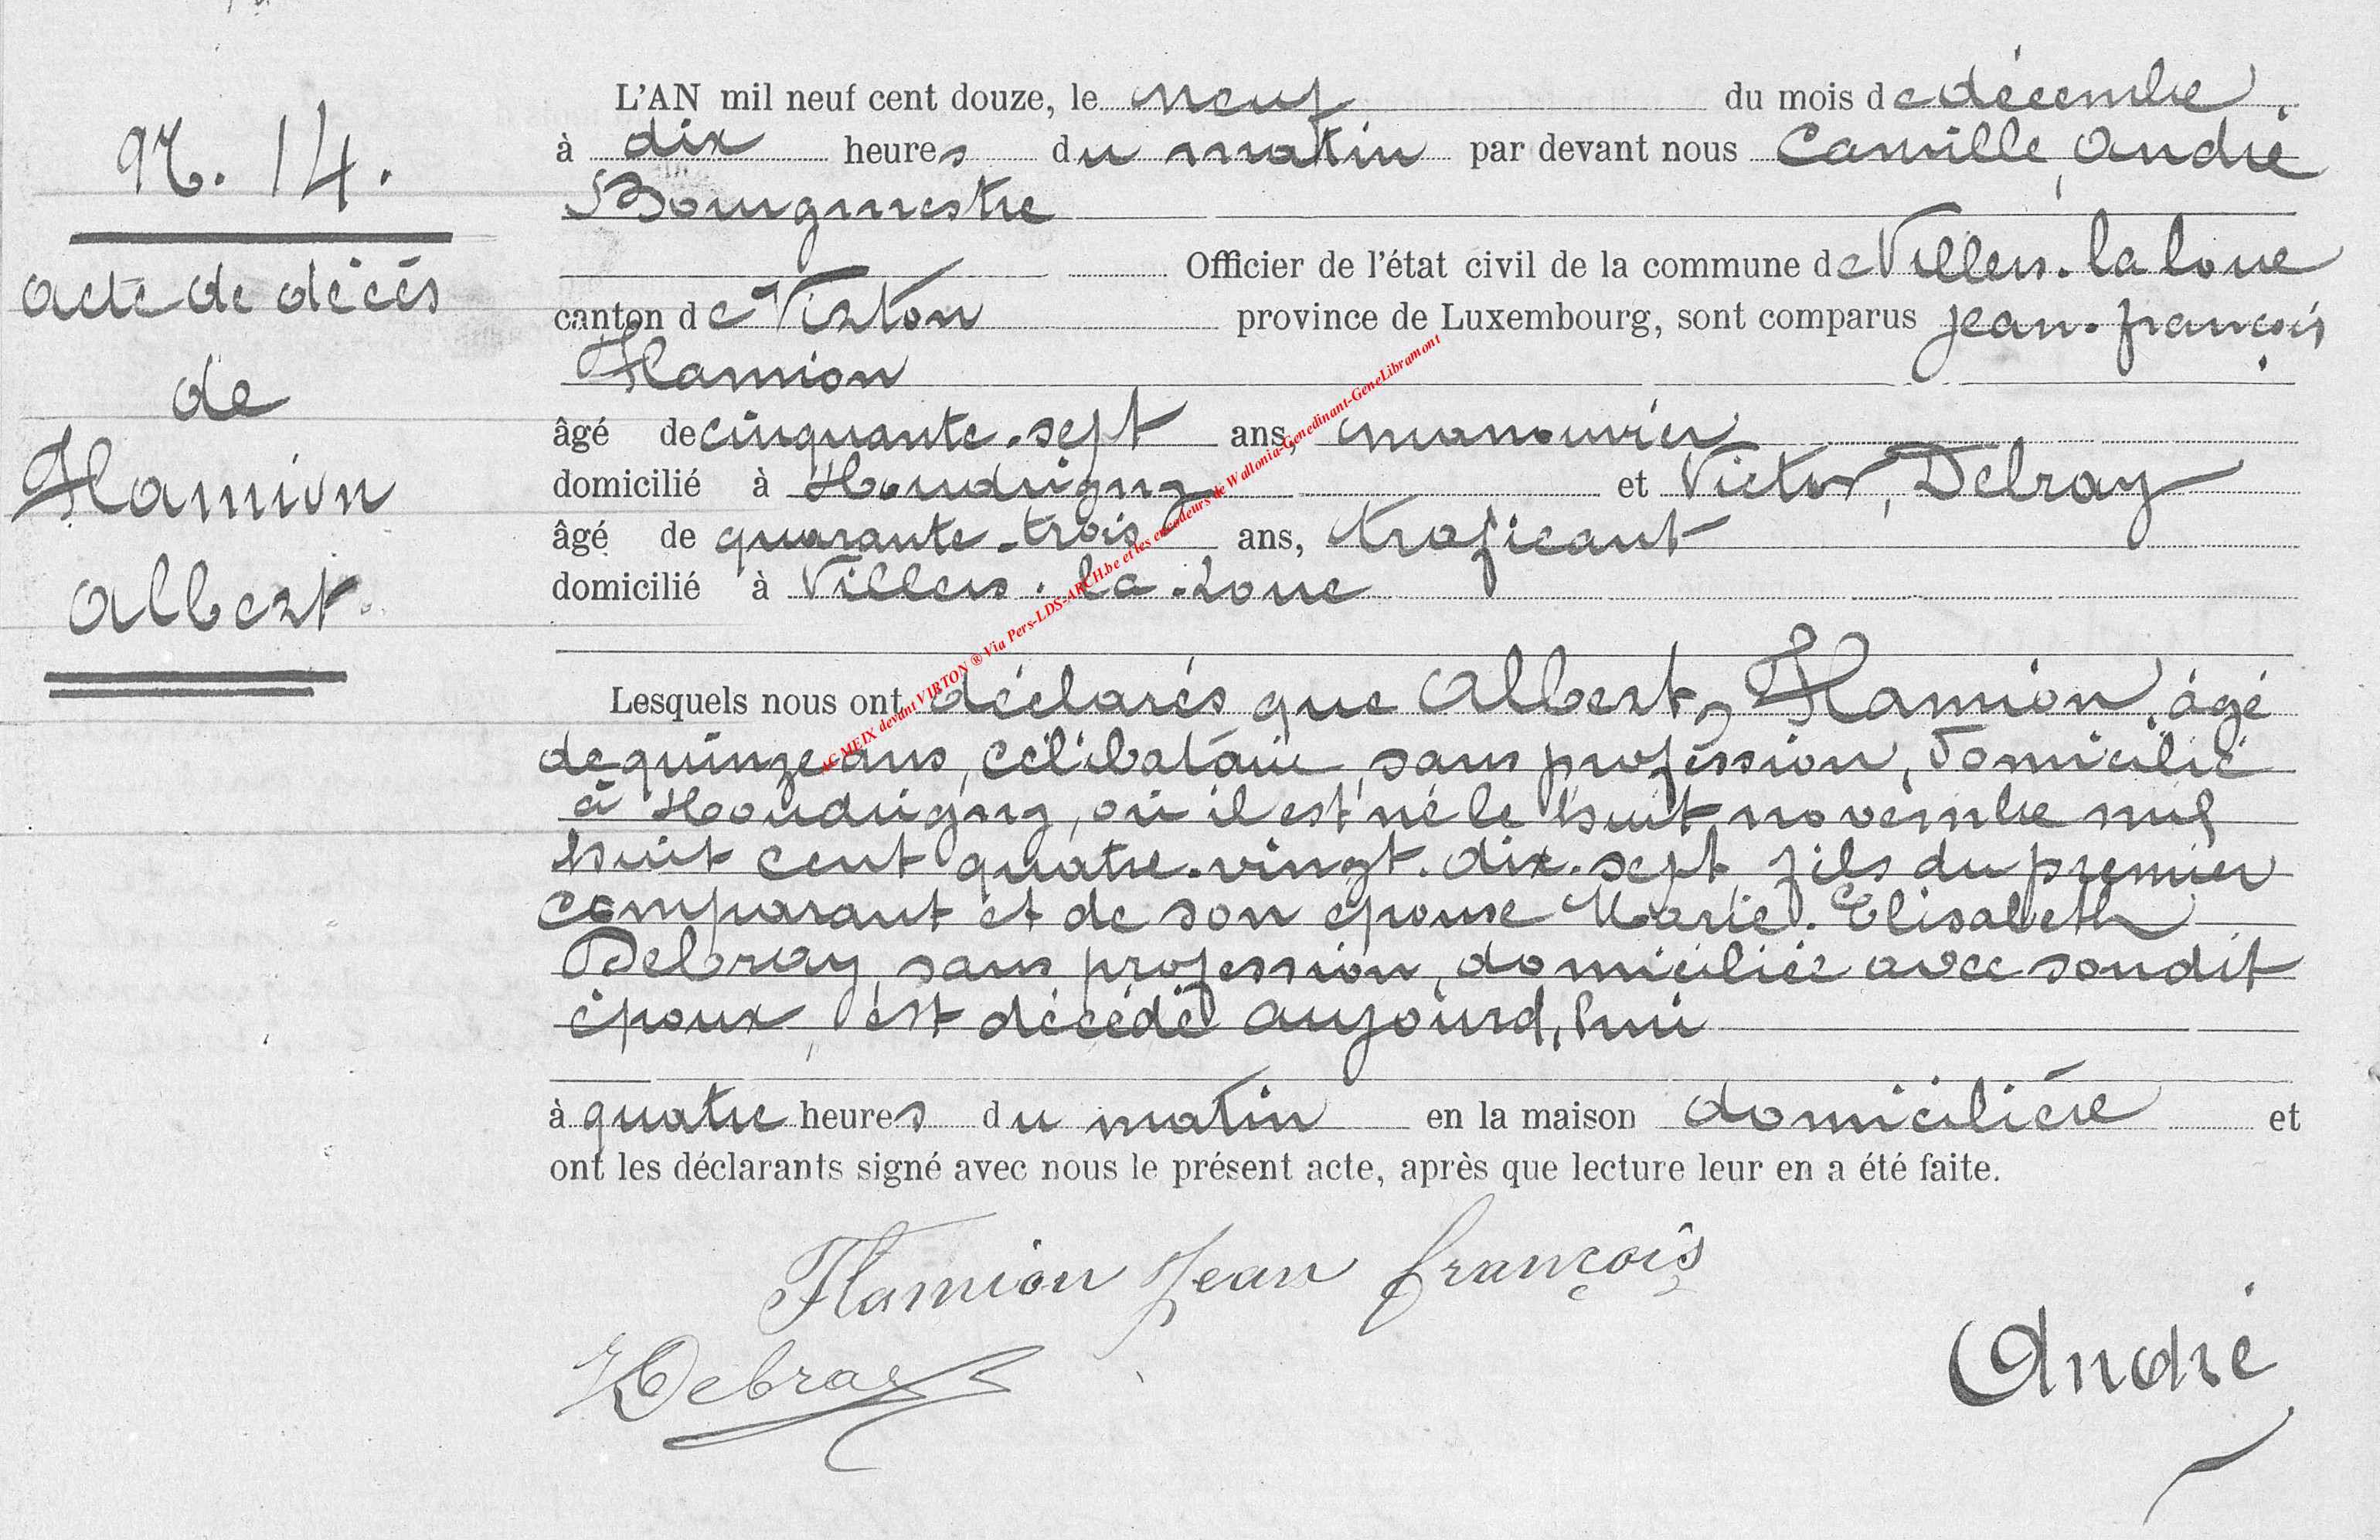 N. 14.
acte de décès
de
Flamion
Albert.
L'AN mil neuf cent douze, le neuf du mois de décembre,
à dix heures du matin par devant nous Camille, André
Bourgmestre
Officier de l'état civil de la commune de Villers-la-loue
canton de Virton province de Luxembourg, sont comparus Jean-françois,
Flamion
âgé de cinquante-sept ans, manouvrier
domicilié à Houdrigny et Victor, Debray
âgé de quarante-trois ans, traficant
domicilié à Villers-la-Loue
Lesquels nous ont déclarés que Albert, Flamion, âgé
de quinze ans, célibataire, sans profession, domicilié
à Houdrigny, où il est né le huit novembre mil
huit cent quatre-vingt-dix-sept, fils du premier
comparant et de son épouse Marie-Elisabeth
Debray, sans profession, domiciliée avec sondit
époux, est décédé aujourd'hui
à quatre heures du matin en la maison domicilière et
ont les déclarants signé avec nous le présent acte, après que lecture leur en a été faite.
Flamion Jean françois
Debray
André
MEIX devant VIRTON ® Via Pers-LDS-ARCH.be et les encodeurs de Wallonia-Genedinant-GeneLibramont